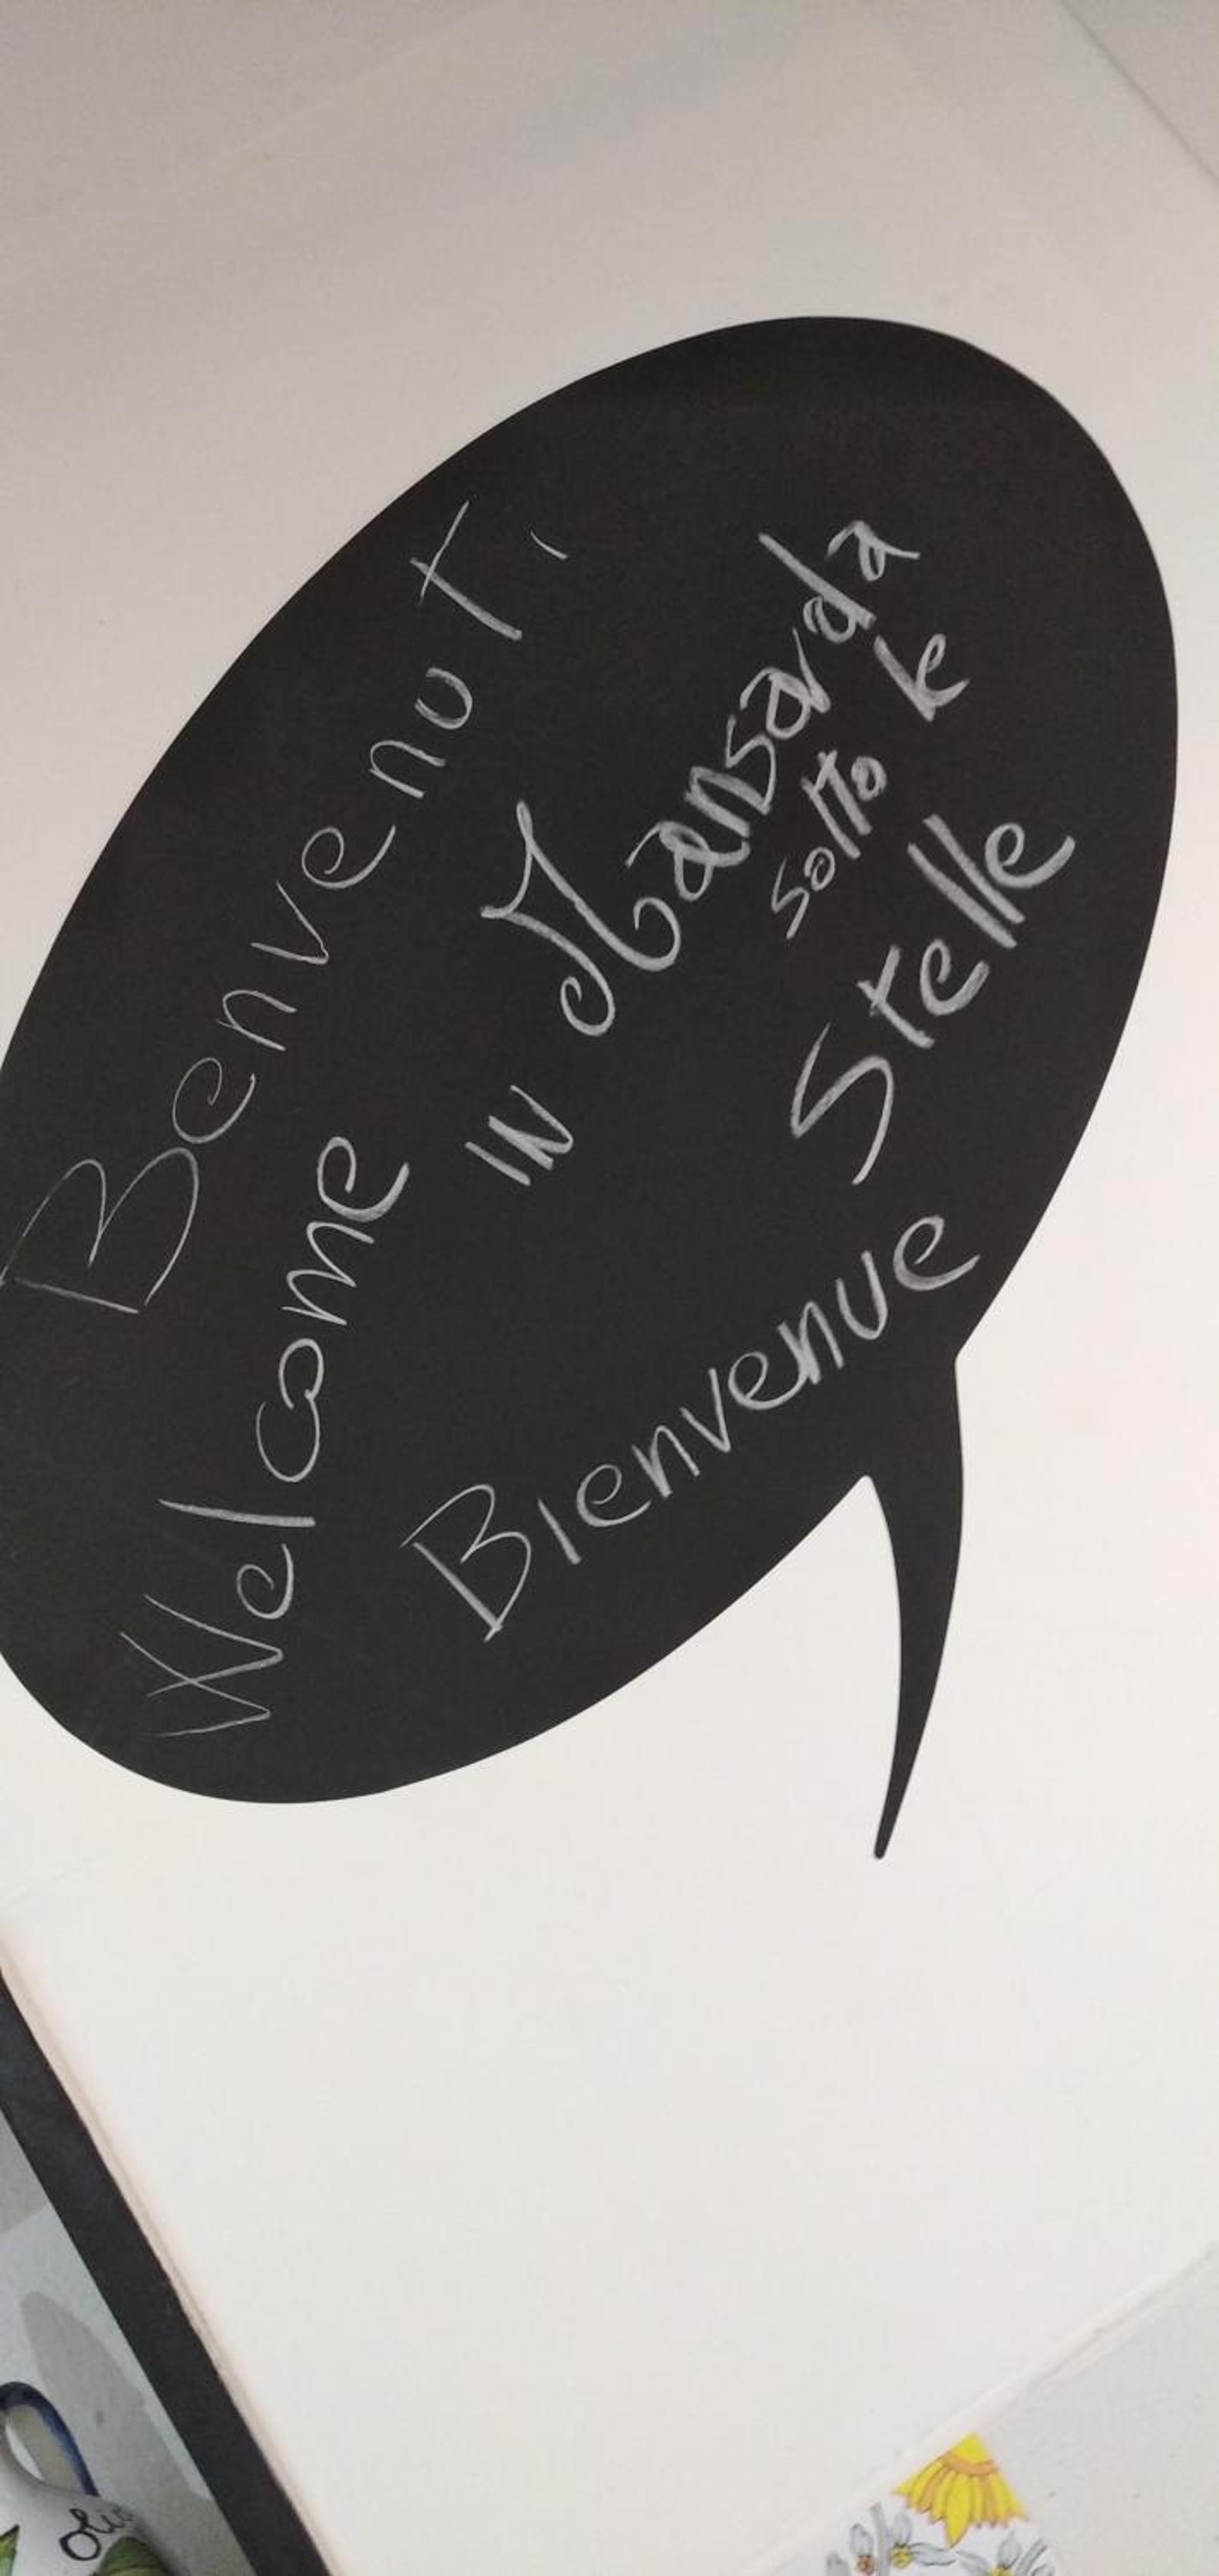 Benvenuti
Welcome
IN Mansarda
sotto le
Stelle
Bienvenue
olio